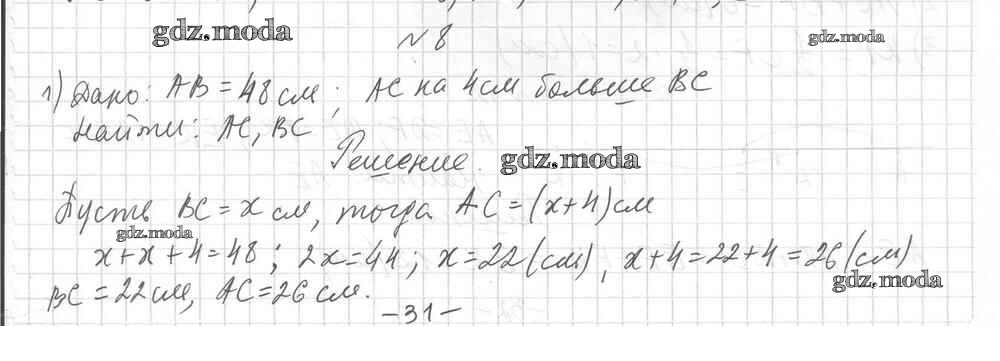 gdz.moda № 8 gdz.moda
1) Дано: AB = 48 см; AC на 4 см больше BC
Найти: AC, BC
Решение. gdz.moda
Пусть BC = x см, тогда AC = (x+4) см
gdz.moda
x + x + 4 = 48; 2x = 44; x = 22 (см), x + 4 = 22 + 4 = 26 (см)
gdz.moda
BC = 22 см, AC = 26 см.
– 31 –